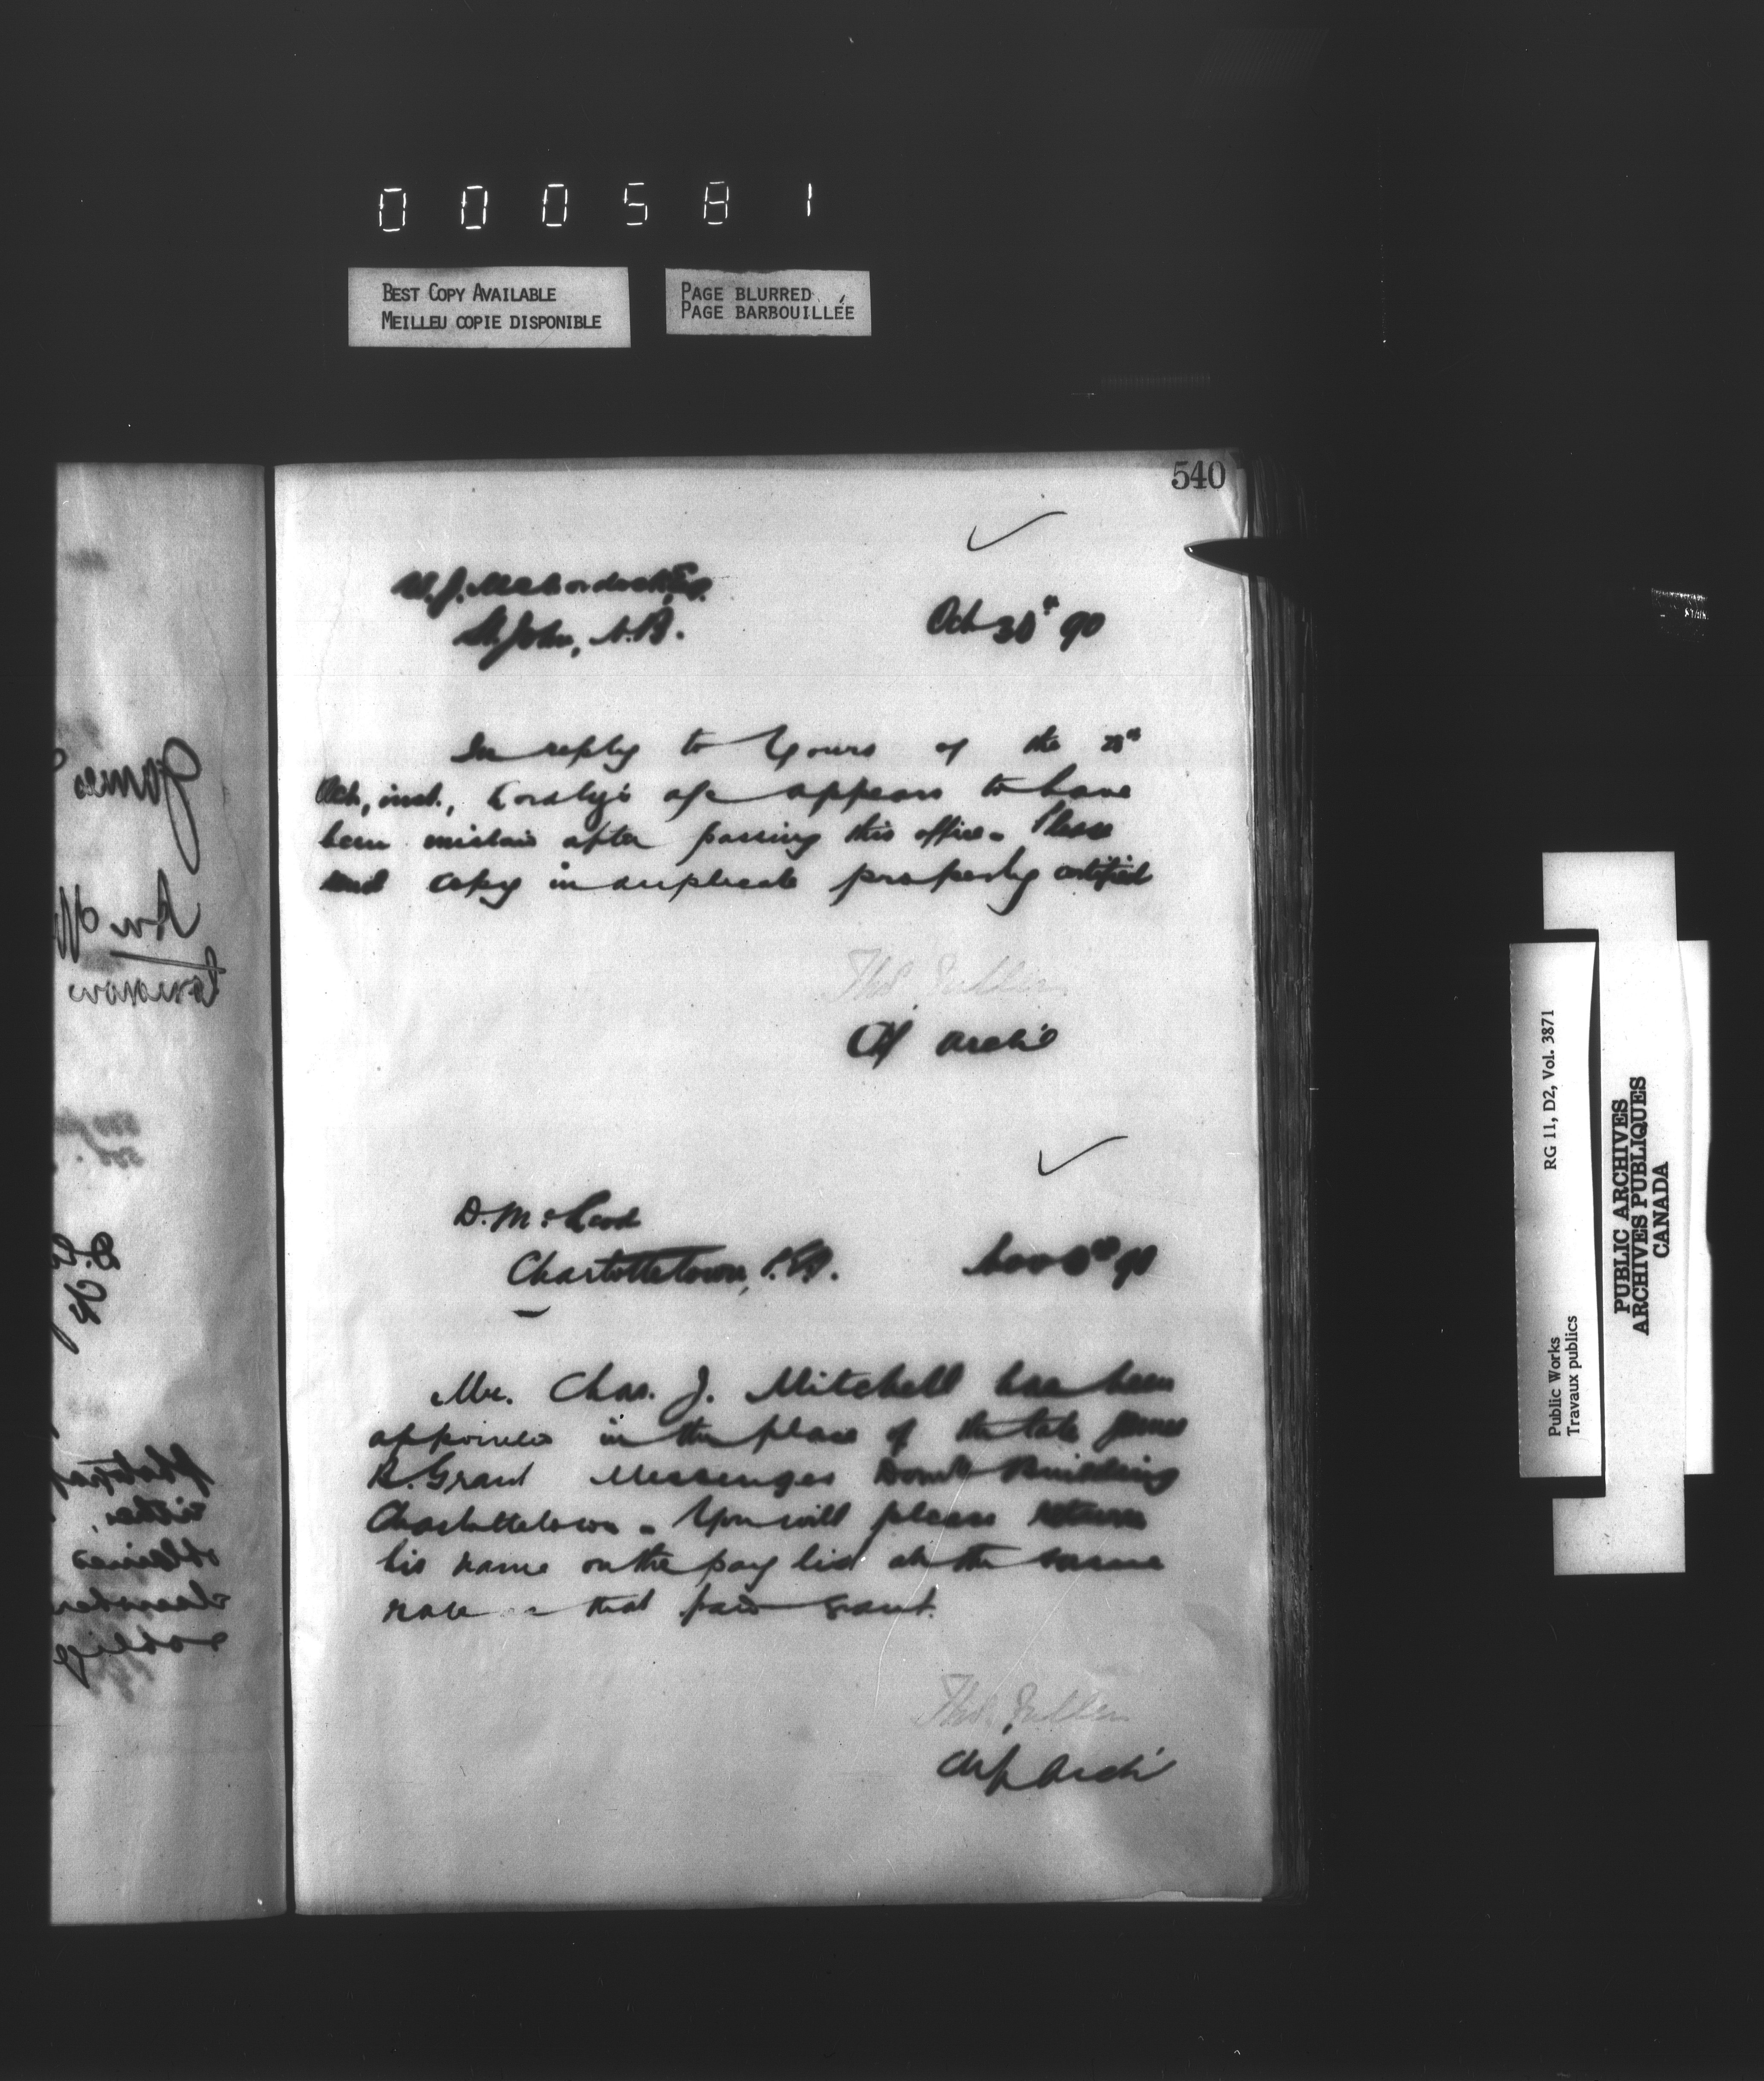 000581
BEST COPY AVAILABLE
MEILLEU COPIE DISPONIBLE
PAGE BLURRED
PAGE BARBOUILLÉE
540
St John, N.B.
Oct 30th 90
In reply to yours of the 28th
Oct, inst., a/c appears to have
been mislaid after passing this office. Please
send copy in duplicate properly certified
Thos Fuller
Ch Archt
D. McLeod
Charlottetown, P.E.I.
Nov 90
Mr. Chas. J. Mitchell has been
appointed in the place of the late James
R. Grant Messenger Domn Building
Charlottetown. You will please return
his name on the pay list at the same
rate as that paid Grant.
Thos. Fuller
Chf Archt
RG 11, D2, Vol. 3871
Public Works
Travaux publics
PUBLIC ARCHIVES
ARCHIVES PUBLIQUES
CANADA